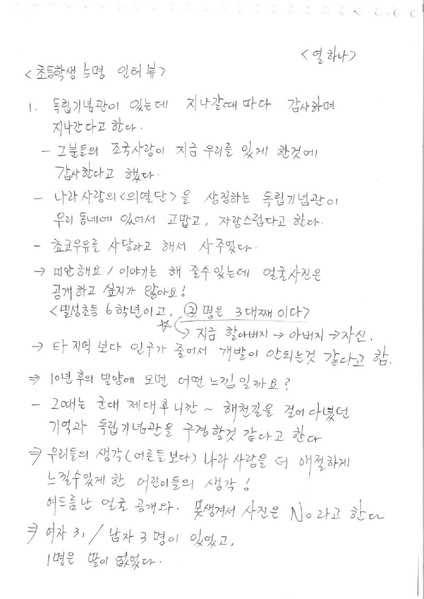 <열하나>
<초등학생 5명 인터뷰>
1. 독립기념관이 있는데 지나갈때 마다 감사하며
지나간다고 한다.
- 그분들의 조국사랑이 지금 우리를 있게 한것에
감사한다고 했다.
- 나라사랑의 <의열단>을 상징하는 독립기념관이
우리 동네에 있어서 고맙고, 자랑스럽다고 한다.
- 쵸코우유를 사달라고 해서 사주었다.
→ 미안해요 / 이야기는 해 줄수 있는데 얼굴사진은
공개하고 싶지가 않아요!
<밀성초등 6학년이고, ②명은 3대째 이다>
지금 할아버지 → 아버지 → 자신.
→ 타 지역 보다 인구가 줄어서 개발이 안되는것 같다고 함.
→ 10년 후의 밀양에 오면 어떤 느낌 일까요?
- 그때는 군대 제대 후니깐 ~ 해천길을 걸어 다녔던
기억과 독립기념관을 구경할것 같다고 한다
⇒ 우리들의 생각 (어른들 보다) 나라 사람을 더 애절하게
느낄수있게 한 어린이들의 생각!
여드름난 얼굴 공개와. 못생겨서 사진은 No라고 한다
⇒ 여자 3, / 남자 3명이 있었고,
1명은 말이 없었다.